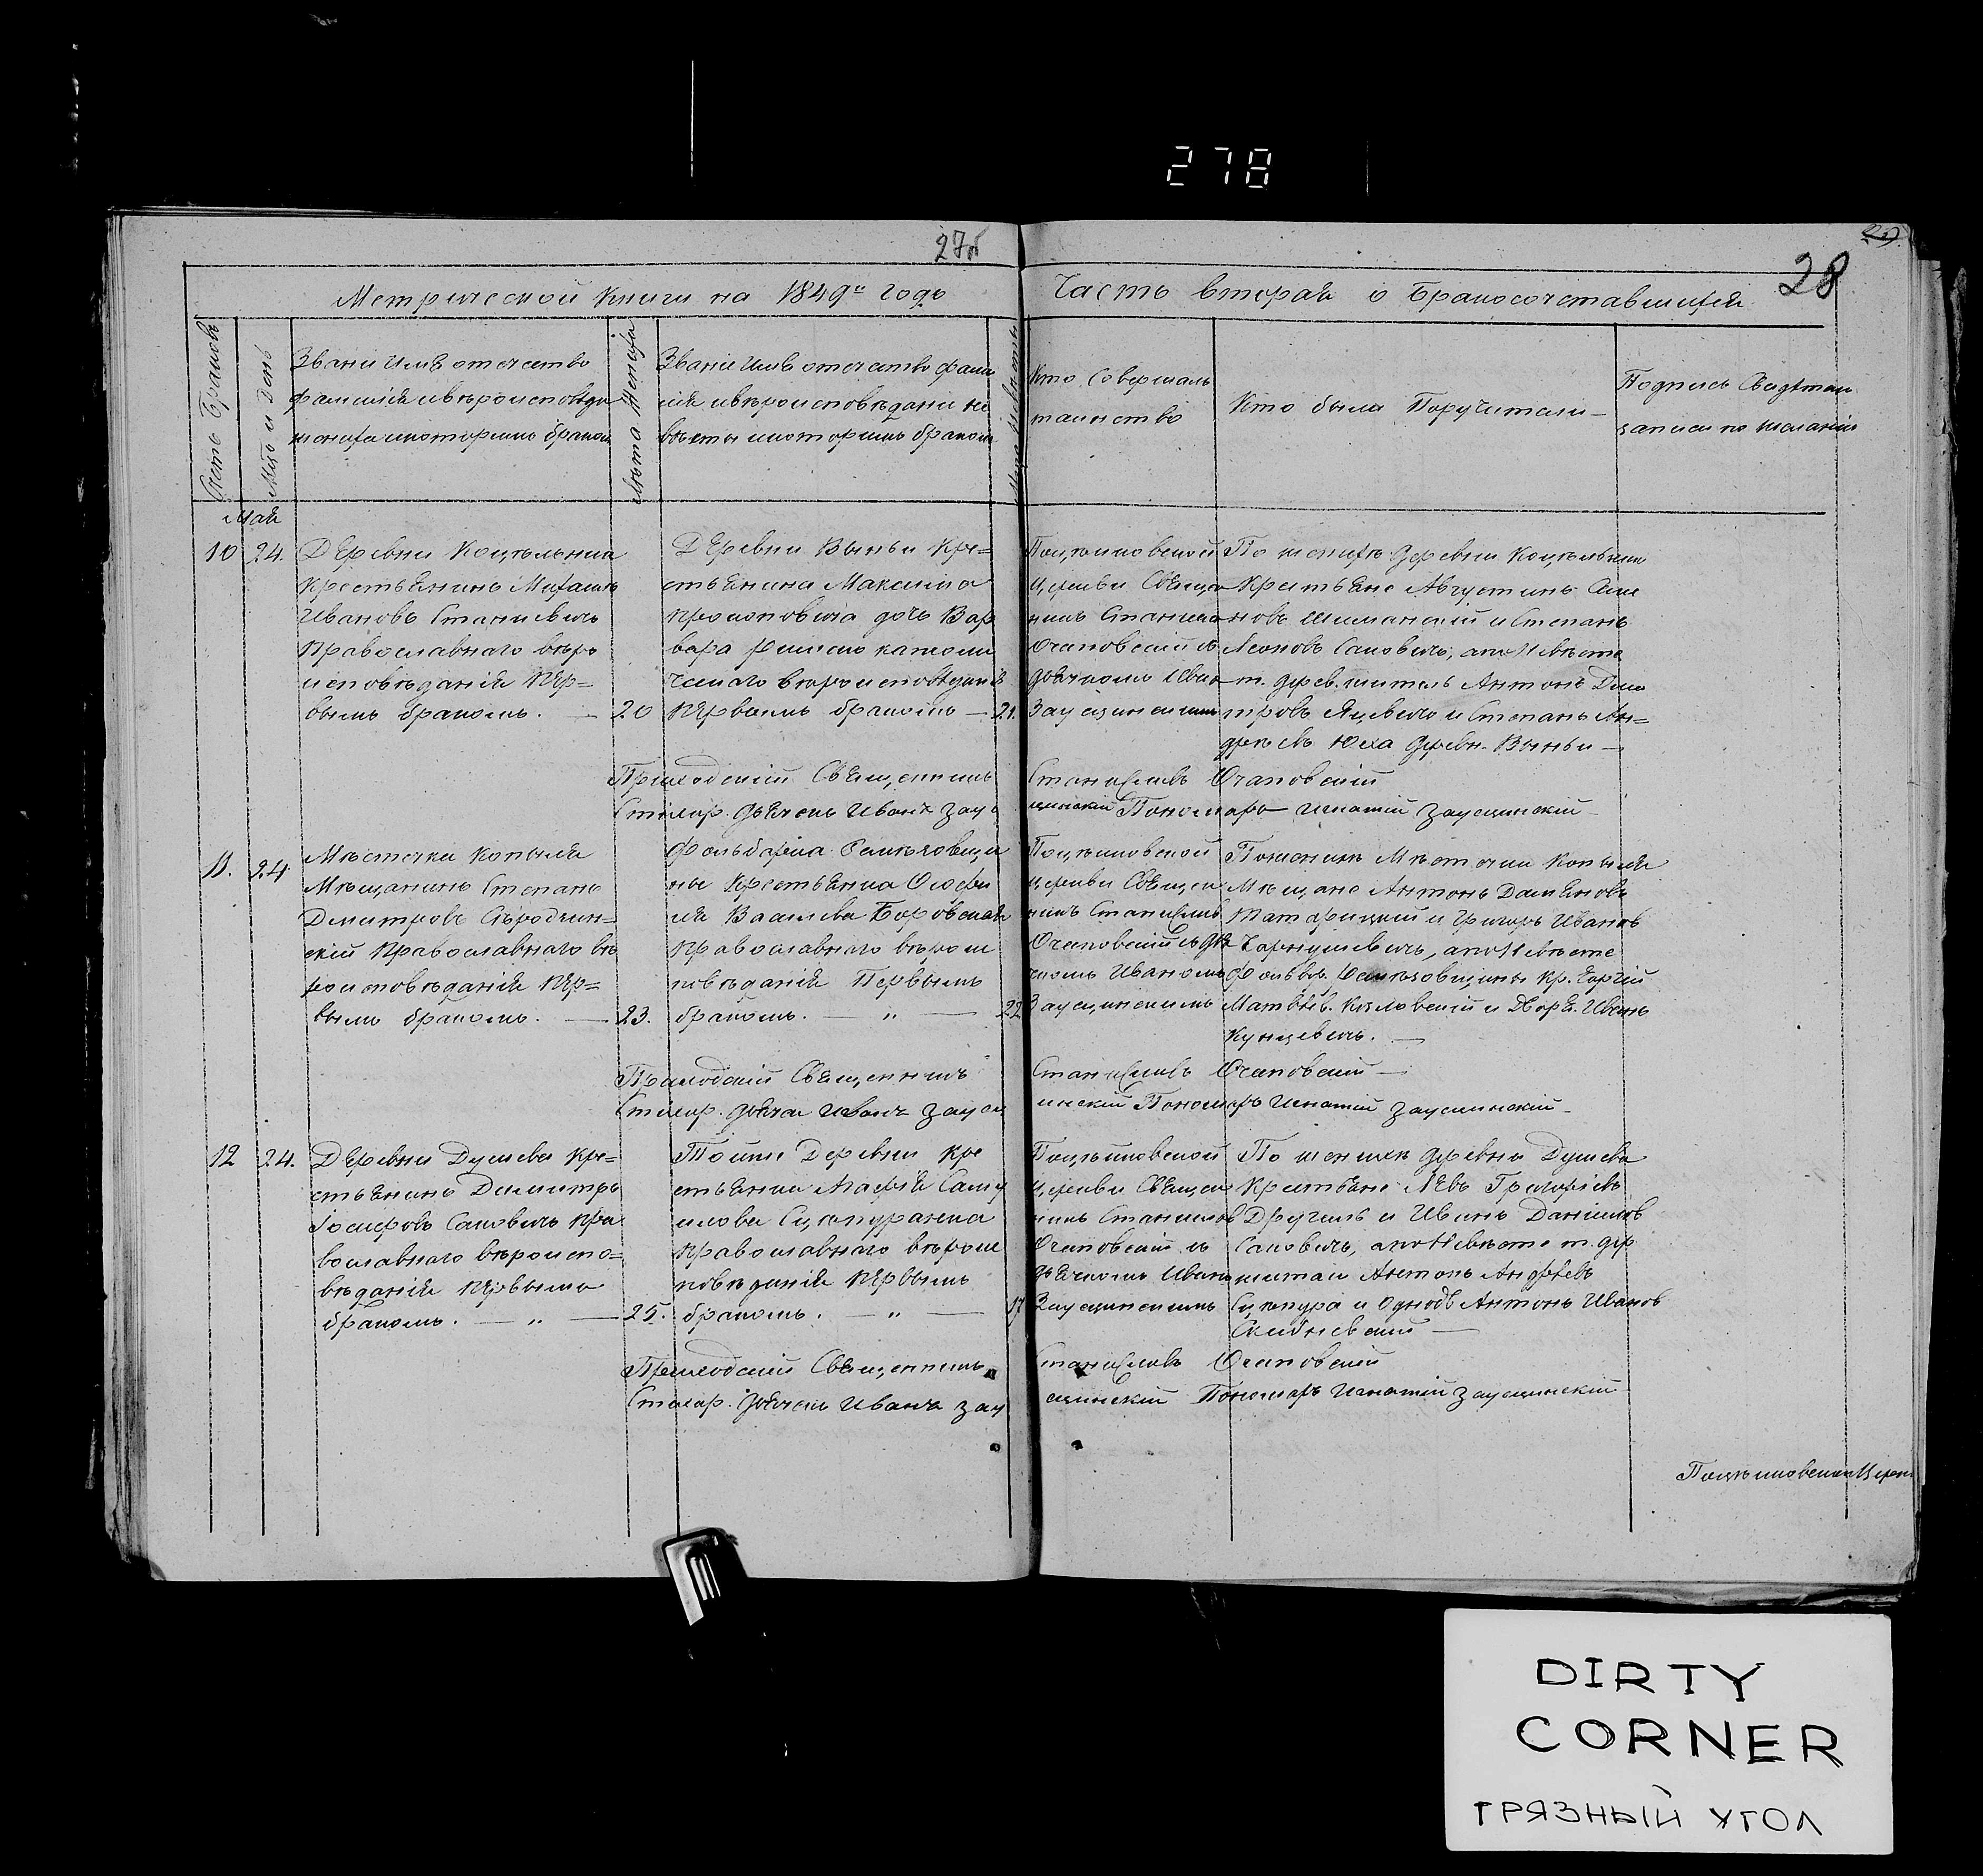 278
27
28
Метрической книги на 1849й годъ
Часть вторая о Бракосочетавшихся
Счетъ Браковъ
Мцъ и День
Звани имя отечество
фамилія и вѣроисповѣда
жениха и которымъ бракомъ
Лѣта Жениха
Званіе имя отечество фами
лія и вѣроисповѣдани не
вѣсты и которымъ бракомъ
Кто совершалъ
таинство
Кто были Поручители
Подпись Свидѣтел
записи по желанію
Май
10 24.
Деревни Коцельника
Крестьянинъ Михаилъ
Ивановъ Станкевичъ
Православнаго вѣро
исповѣданія пер=
вымъ бракомъ. — 20
Деревни Выньи кре=
стьянина Максима
Прокоповича дочь Вар
вара Римско католи
ческаго вѣроисповѣданія
первымъ бракомъ — 21.
Церкви Священ
никъ Станислав
Очаповскій съ
дьячкомъ Ивано
Заусцинскимъ
По женихѣ деревни
Крестьяне Августинъ
новъ Шиманскій и Степанъ
Леоновъ Саковичъ, а по Невѣсте
т. дерев. житель Антонъ Дми
тровъ Яцевичъ и Степанъ Ан=
дреевъ Юха дерев. Выньи —
Приходскій Священникъ Станиславъ Очаповскій
Стихар. дьячокъ Иванъ Заусцинскій Пономарь Игнатій Заусцинскій
11. 24
Мѣстечка Копыля
Мѣщанинъ Степанъ
Дмитровъ
скій Православнаго вѣ
роисповѣданія пер=
вымъ бракомъ. — 23.
Фольварка
ны Крестьянка
Васильева Боровская
Православнаго вѣроис
повѣданія Первымъ
бракомъ. — „ — 22
Церкви Священ
никъ Станислав
Очаповскій съ дья
чкомъ Иваномъ
Заусцинскимъ
По женихѣ Мѣстечки Копыля
Мѣщане Антонъ Дамяновъ
и Григорь Иванов
Чарнушевичъ, а по Невѣсте
Фольвар. кр.
Матвѣев. Козловскій и Двор. Иванъ
Кунцевичъ. —
Приходскій Священникъ Станиславъ Очаповскій —
Стихар. дьячок Иванъ Заусцинскій Пономарь Игнатій Заусцинскій
12 24.
Деревни Душева кре=
стьянинъ Димитрь
Іосифовъ Саковичъ пра
вославнаго вѣроиспо=
вѣданія первымъ
бракомъ. — „ — 25.
Тойже Деревни кре
стьянка Агафія Саму
илова
православнаго вѣроис
повѣданія первымъ
бракомъ. — „ — 17
Церкви Священ
никъ Станислав
Очаповскій съ
дьячкомъ Ивано
Заусцинскимъ
По женихѣ деревни Душева
Крестьяне Левъ Григорьевъ
Другакъ и Иванъ Даниилов
Саковичъ, а по Невѣсте т. дер.
житель Антонъ Андреевъ
и Однодв. Антонъ Иванов
Приходскій Священникъ Станиславъ Очаповскій
Стихар. дьячокъ Иванъ Заусцинскій Пономарь Игнатій Заусцинскій
DIRTY
CORNER
ГРЯЗНЫЙ УГОЛ